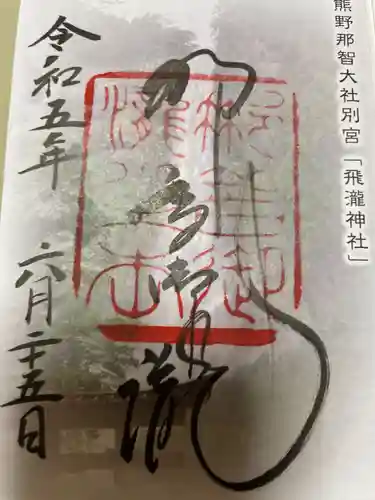 熊野那智大社別宮「飛瀧神社」
那智御瀧
令和五年
六月二十五日